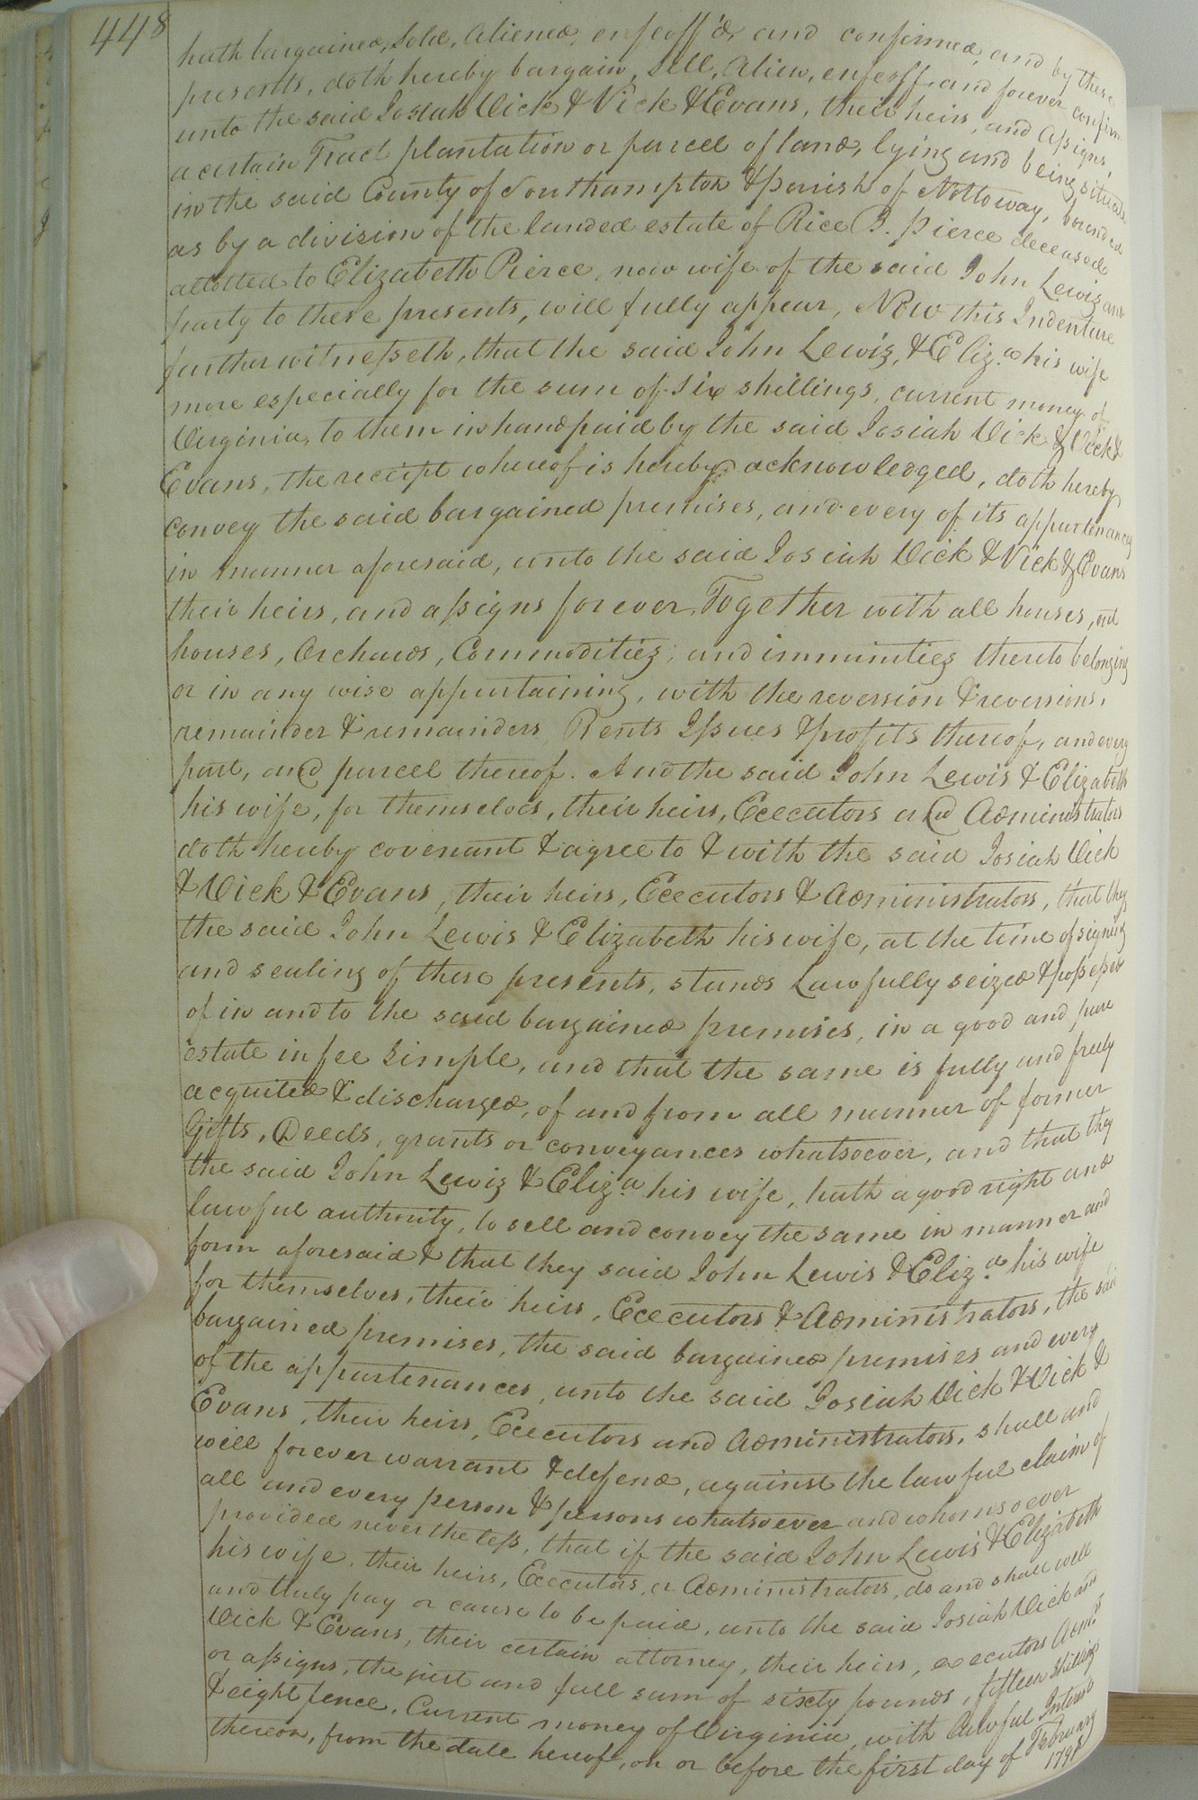 448
hath bargained, Sold, Aliened, enfeoff'd, and confirmed, and by these
presents, doth hereby bargain, Sell, Alien, enfeoff, and forever confirm
unto the said Josiah Vick & Vick & Evans, their heirs, and assigns,
a certain Tract plantation or parcel of land, lying and being situate
in the said County of Southampton & parish of Nottoway, bounded
as by a division of the landed estate of Rice B. Pierce deceased
allotted to Elizabeth Pierce, now wife of the said John Lewis and
party to these presents, will fully appear, Now this Indenture
further witnesseth, that the said John Lewis, & Eliz.a his wife
more especially for the sum of Six shillings, current money of
Virginia, to them in hand paid by the said Josiah Vick & Vick &
Evans, the receipt whereof is hereby acknowledged, doth hereby
convey the said bargained premises, and every of its appurtenances
in manner aforesaid, unto the said Josiah Vick & Vick & Evans
their heirs, and assigns forever, Together with all houses, out
houses, Orchards, Commodities, and immunities thereto belonging
or in any wise appurtaining, with the reversion & reversions,
remainder & remainders Rents Issues & profits thereof, and every
part, and parcel thereof. And the said John Lewis & Elizabeth
his wife, for themselves, their heirs, Executors and Administrators
doth hereby covenant & agree to & with the said Josiah Vick
& Vick & Evans, their heirs, Executors & Administrators, that they
the said John Lewis & Elizabeth his wife, at the time of signing
and sealing of these presents, stands Lawfully seized & possessed
of in and to the said bargained premises, in a good and pure
estate in fee Simple, and that the same is fully and freely
acquited & discharged, of and from all manner of former
Gifts, Deeds, grants or conveyances whatsoever, and that they
the said John Lewis & Eliz.a his wife, hath a good right and
lawful authority, to sell and convey the same in manner and
form aforesaid & that they said John Lewis & Eliz.a his wife
for themselves, their heirs, Executors & Administrators, the said
bargained premises, the said bargained premises and every
of the appurtenances, unto the said Josiah Vick & Vick &
Evans, their heirs, Executors and Administrators, shall and
will forever warrant & defend, against the lawful claim of
all and every person & persons whatsoever and whomsoever
provided nevertheless, that if the said John Lewis & Elizabeth
his wife, their heirs, Executors, or Administrators, do and shall well
and truly pay or cause to be paid, unto the said Josiah Vick and
Vick & Evans, their certain attorney, their heirs, executors Adm.rs
or assigns, the just and full sum of sixty pounds, fifteen shillings
& eight pence, Current money of Virginia, with lawful Interest
thereon, from the date hereof, on or before the first day of February
1798